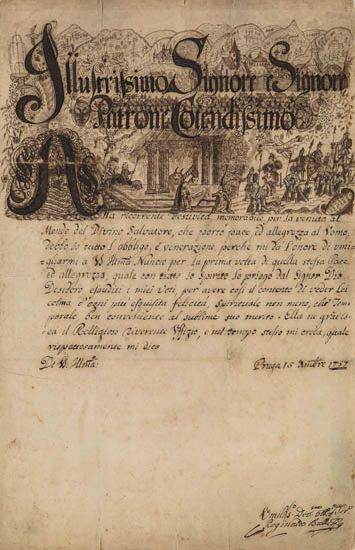 Illustrissimo Signore e Signore
Patrone Colendissimo
Alla ricorrente festività memorabile per la venuta al
Mondo del Divino Salvatore, che portò pace ed allegrezza al Uomo,
debbo io tutto l'obligo, e venerazione perche mi dà l'onore di
quarmi à V. Illma Nuncio per la prima volta di quella stessa Pace
ed allegrezza, quale con tutto lo Spirito Io priego dal Signor Dio
Desidero esauditi i miei Voti, per avere cosi il contento di veder Lei
colma d'ogni più esquisita felicità, Spirituale non meno, che Tem-
porale ben conveniente al sublime suo merito. Ella
il Religioso riverente Uffizio, e nel tempo stesso mi creda, quale
rispettosamente mi dico
Di V. Illma
Praga 15 Xmbre 1757